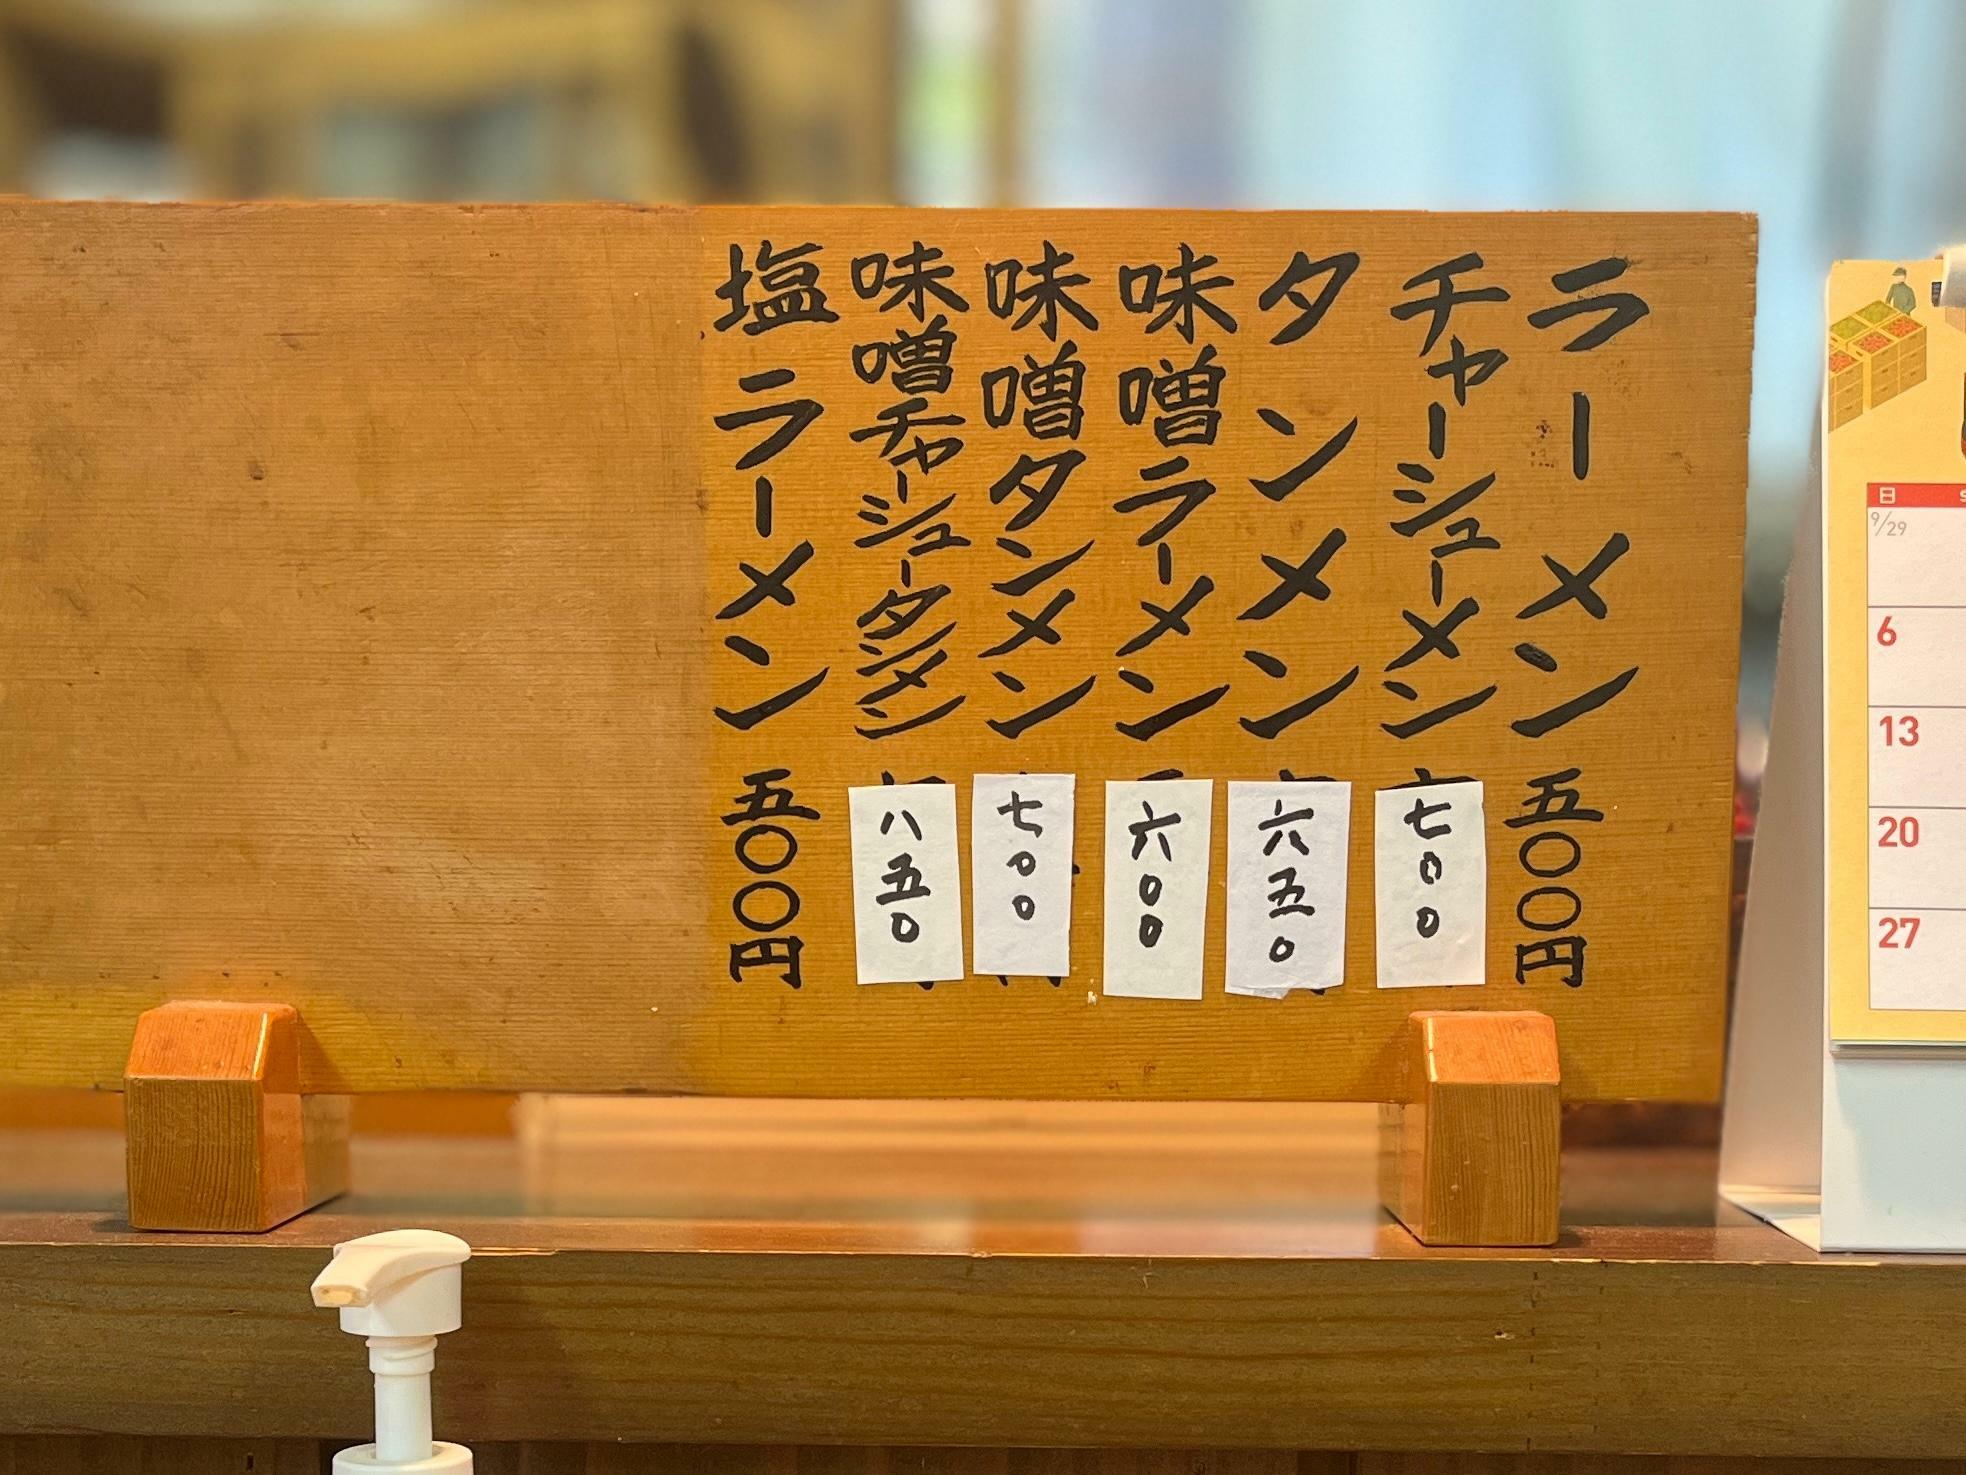 ラーメン 五〇〇円
チャーシューメン 七〇〇
タンメン 六五〇
味噌ラーメン 六〇〇
味噌タンメン 七〇〇
味噌チャーシュータンメン 八五〇
塩ラーメン 五〇〇円
日
9/29
6
13
20
27